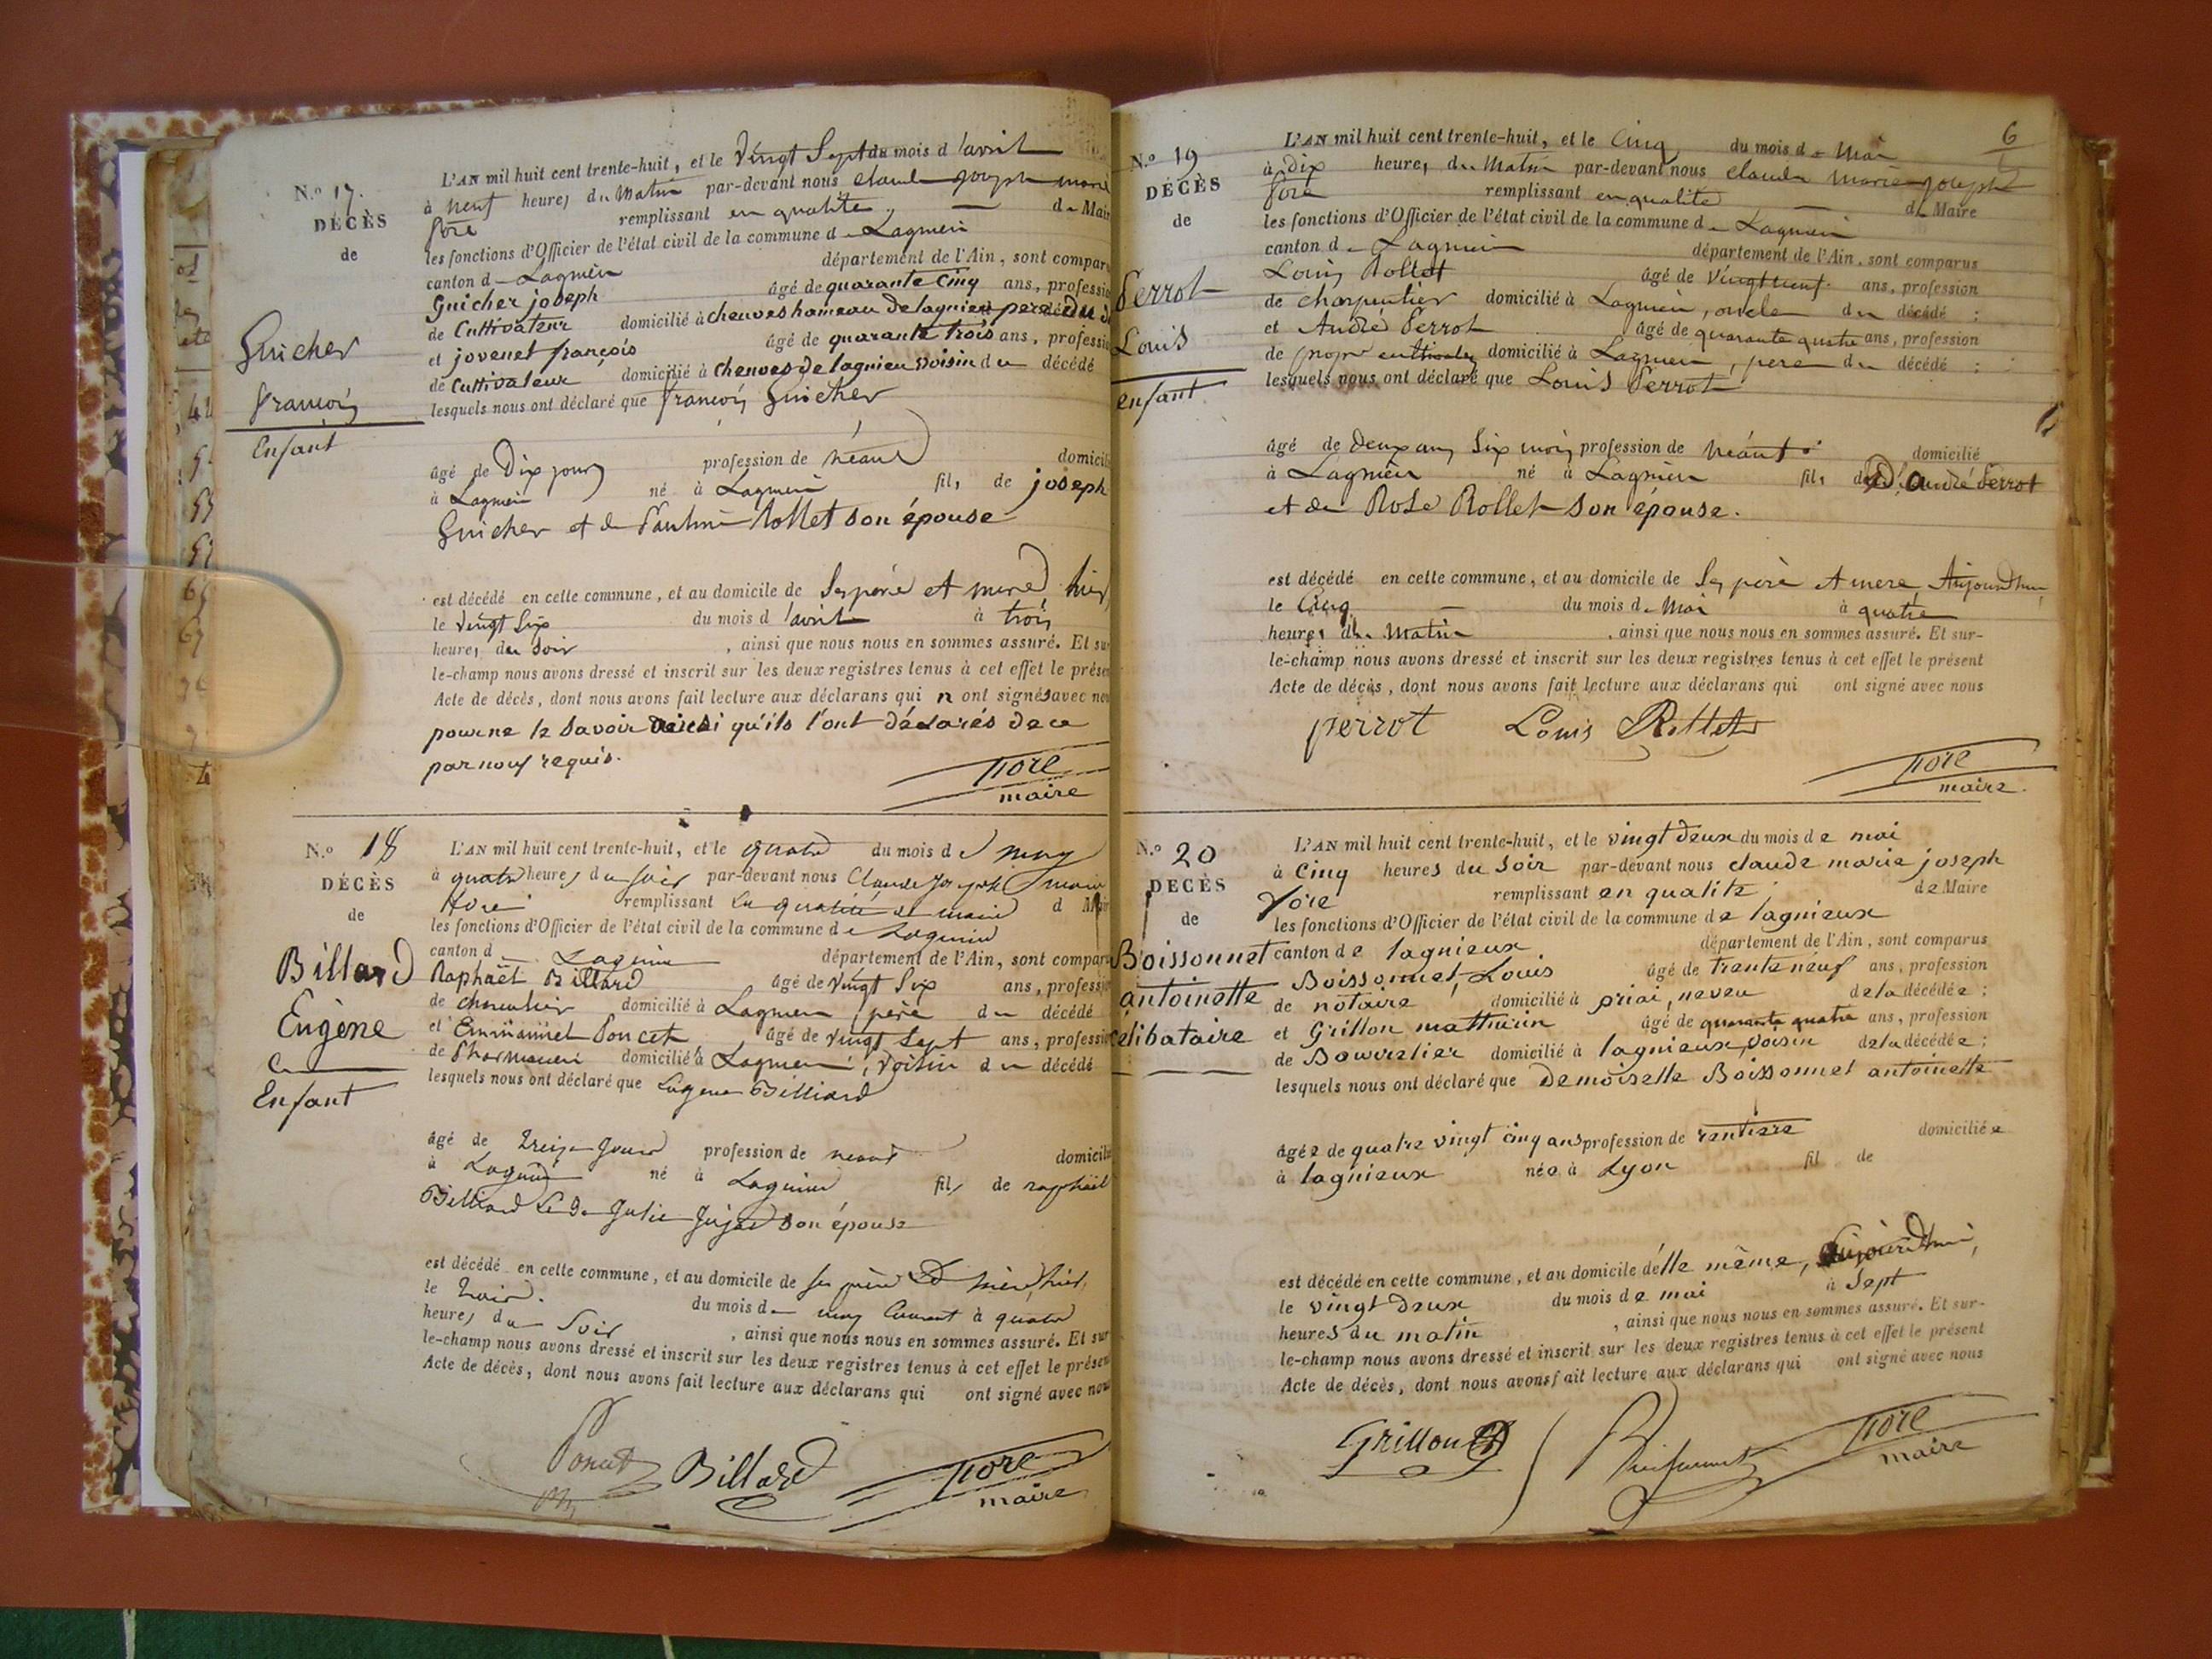 N.o 17.
DÉCÈS
de
Guicher
françois
Enfant
L'AN mil huit cent trente-huit, et le Vingt Sept du mois d'avril
à neuf heures du Matin par-devant nous claude joseph marie
fore remplissant en qualité de Mair
les fonctions d'Officier de l'état civil de la commune de Lagnieu
canton de Lagnieu département de l'Ain, sont compar
Guicher joseph âgé de quarante cinq ans, professio
de Cultivateur domicilié à cheuves hameau de lagnieu pere du d
et jovenet françois âgé de quarante trois ans, professio
de cultivateur domicilié à cheuves de lagnieu voisin du décédé
lesquels nous ont déclaré que françois Guicher
âgé de Dix jours profession de néant domicili
à Lagnieu né à Lagnieu fils de joseph
Guicher et de Pauline Rollet son épouse
est décédé en cette commune, et au domicile de ses père et mere hier
le vingt Six du mois d'avril à trois
heures du Soir, ainsi que nous nous en sommes assuré. Et sur
le-champ nous avons dressé et inscrit sur les deux registres tenus à cet effet le présen
Acte de décès, dont nous avons fait lecture aux déclarans qui n ont signés avec nou
pour ne le savoir ainsi qu'ils l'ont déclarés de ce
par nous requis.
fore
maire
N.o 18
DÉCÈS
de
Billard
Eugène
Enfant
L'AN mil huit cent trente-huit, et le quatre du mois de may
à quatre heures du soir par-devant nous Claude Joseph marie
fore remplissant en qualité de maire d Mair
les fonctions d'Officier de l'état civil de la commune de Lagnieu
canton d Lagnieu département de l'Ain, sont compar
Raphaël Billard âgé de Vingt Six ans, professio
de domicilié à Lagnieu, père du décédé
et Emmanuel Poncet âgé de vingt Sept ans, professio
de Pharmacien domicilié à Lagnieu, voisin du décédé
lesquels nous ont déclaré que Eugene Billiard
âgé de treize Jours profession de neant domicili
à Lagnieu né à Lagnieu fils de raphaël
Billiard et de Julie son épouse
est décédé en cette commune, et au domicile de ses père et mère, hier,
le trois. du mois de may Courant à quatre
heures du Soir, ainsi que nous nous en sommes assuré. Et sur
le-champ nous avons dressé et inscrit sur les deux registres tenus à cet effet le présen
Acte de décès, dont nous avons fait lecture aux déclarans qui ont signé avec nou
Poncet Billard fore
maire
6
N.o 19
DÉCÈS
de
Perrot
Louis
enfant
L'AN mil huit cent trente-huit, et le Cinq du mois de Mai
à Dix heures du Matin par-devant nous claude marie joseph
fore remplissant en qualité de Maire
les fonctions d'Officier de l'état civil de la commune de Lagnieu
canton de Lagnieu département de l'Ain, sont comparus
Louis Rollet âgé de vingt neuf ans, profession
de charpentier domicilié à Lagnieu, oncle du décédé ;
et André Perrot âgé de quarante quatre ans, profession
de propre cultivateur domicilié à Lagnieu, pere du décédé ;
lesquels nous ont déclaré que Louis Perrot
âgé de deux ans Six mois profession de néant domicilié
à Lagnieu né à Lagnieu fils d'andré Perrot
et de Rose Rollet son épouse.
est décédé en cette commune, et au domicile de Ses père et mere Aujourdhui
le Cinq du mois de Mai à quatre
heures du Matin, ainsi que nous nous en sommes assuré. Et sur-
le-champ nous avons dressé et inscrit sur les deux registres tenus à cet effet le présent
Acte de décès, dont nous avons fait lecture aux déclarans qui ont signé avec nous
perrot Louis Rollet
fore
maire.
N.o 20
DÉCÈS
de
Boissonnet
antoinette
célibataire
L'AN mil huit cent trente-huit, et le vingt deux du mois de mai
à cinq heures du soir par-devant nous claude marie joseph
fore remplissant en qualité de Maire
les fonctions d'Officier de l'état civil de la commune de lagnieux
canton de lagnieux département de l'Ain, sont comparus
Boissonnet, Louis âgé de trente neuf ans, profession
de notaire domicilié à priai, neveu de la décédée ;
et Grillon mathurin âgé de quarante quatre ans, profession
de Bourrelier domicilié à lagnieux, voisin de la décédée ;
lesquels nous ont déclaré que Demoiselle Boissonnet antoinette
âgée de quatre vingt cinq ans profession de rentiere domiciliée
à lagnieux née à Lyon fil de
est décédé en cette commune, et au domicile d'elle même, aujourdhui,
le vingt deux du mois de mai à Sept
heures du matin, ainsi que nous nous en sommes assuré. Et sur-
le-champ nous avons dressé et inscrit sur les deux registres tenus à cet effet le présent
Acte de décès, dont nous avons fait lecture aux déclarans qui ont signé avec nous
Grillon fore
maire